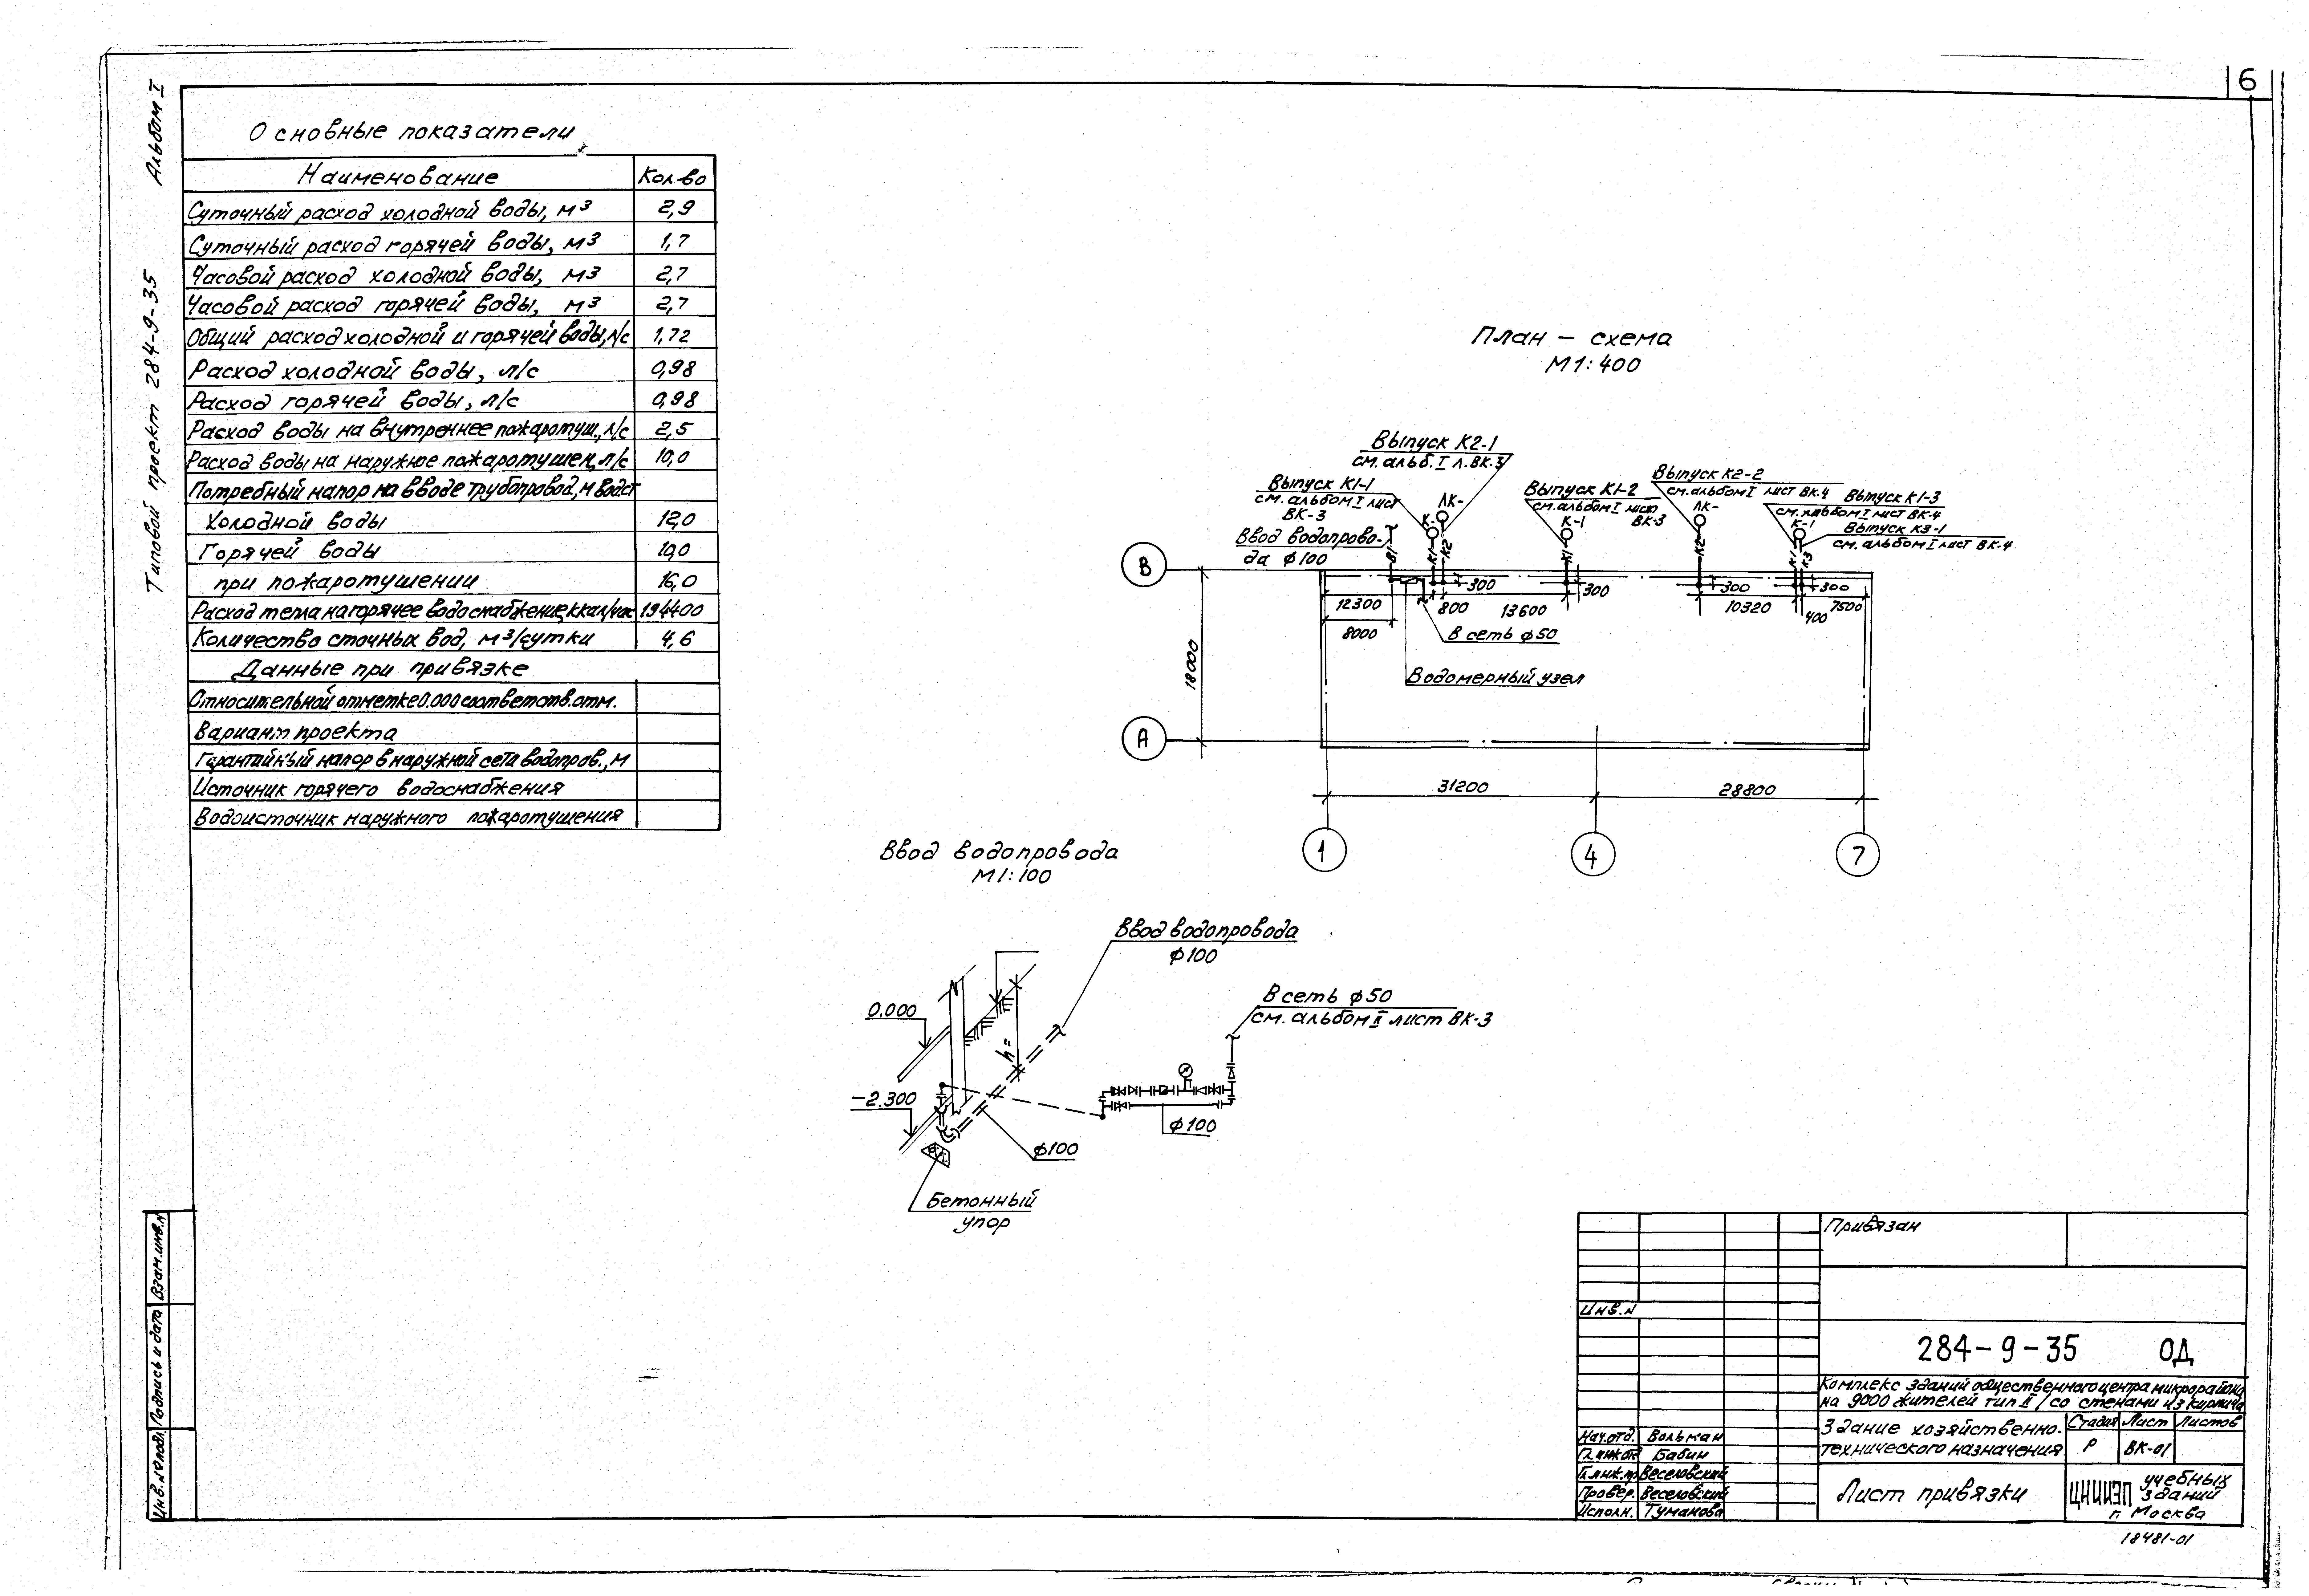 6
Альбом I
Типовой проект 284-9-35
Основные показатели
Наименование Кол-во
Суточный расход холодной воды, м³ 2,9
Суточный расход горячей воды, м³ 1,7
Часовой расход холодной воды, м³ 2,7
Часовой расход горячей воды, м³ 2,7
Общий расход холодной и горячей воды, л/с 1,72
Расход холодной воды, л/с 0,98
Расход горячей воды, л/с 0,98
Расход воды на внутреннее пожаротуш., л/с 2,5
Расход воды на наружное пожаротушен, л/с 10,0
Потребный напор на вводе трубопровод, м вод.ст
Холодной воды 12,0
Горячей воды 10,0
при пожаротушении 16,0
Расход тепла на горячее водоснабжение, ккал/час 194400
Количество сточных вод, м³/сутки 4,6
Данные при привязке
Относительной отметке 0.000 соответств. отм.
Вариант проекта
Гарантийный напор в наружной сети водопров., м
Источник горячего водоснабжения
Водоисточник наружного пожаротушения
План – схема
М1:400
Выпуск К2-1
см. альб. I л. ВК-3
Выпуск К1-1
см. альбом I лист
ВК-3
Ввод водопрово-
да ф100
Выпуск К1-2
см. альбом I лист
ВК-3
Выпуск К2-2
см. альбом I лист ВК.4
Выпуск К1-3
см. альбом I лист ВК-4
Выпуск К3-1
см. альбом I лист ВК-4
К- ЛК- К-1 ЛК- К-1
В1 К1 К2 К1 К2 К1 К3
300 300 300 300
12300 800 13600 10320 400 7500
8000
В сеть ф50
Водомерный узел
В
А
18000
31200 28800
1 4 7
Ввод водопровода
М1:100
Ввод водопровода
ф100
0.000
-2.300
h=
В сеть ф50
см. альбом II лист ВК-3
ф100
ф100
Бетонный
упор
Взам. инв. N
Подпись и дата
Инв. № подл.
Привязан
Инв. N
284-9-35 ОД
Комплекс зданий общественного центра микрорайона
на 9000 жителей тип II /со стенами из кирпича
Здание хозяйственно-
технического назначения
Стадия Лист Листов
Р ВК-01
Лист привязки
ЦНИИЭП учебных
зданий
г. Москва
Нач.отд. Вольман
Гл.инж.от Бабин
Гл.инж.пр Веселовский
Провер. Веселовский
Исполн. Туманова
18481-01